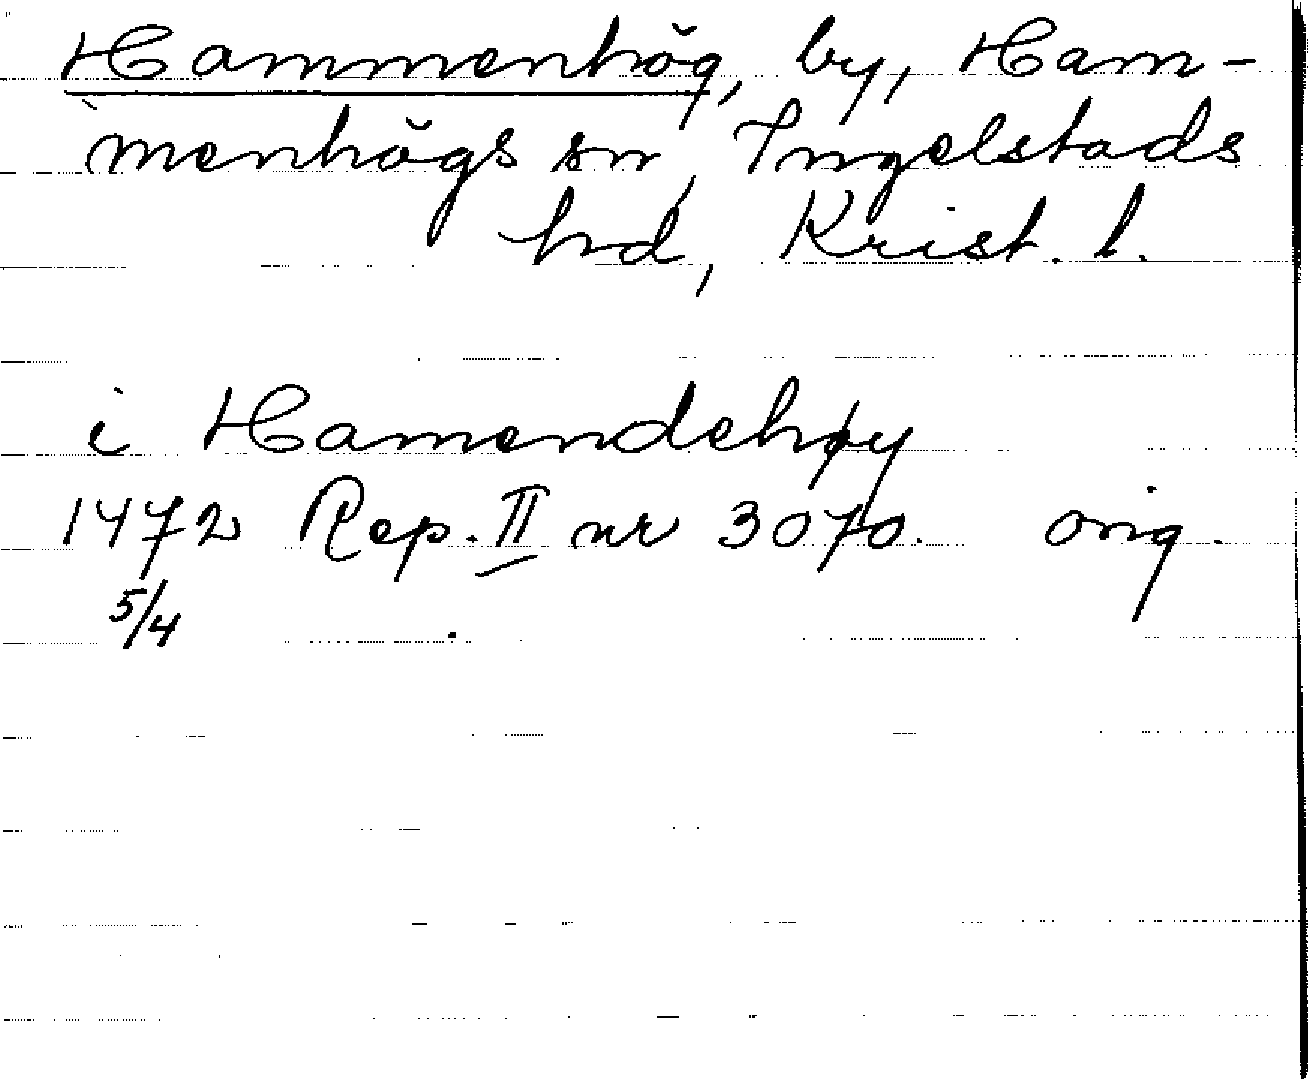 Hammenhög, by, Ham-
menhögs sn, Ingelstads
hd, Krist. l.
i Hamendehøy
1472 Rep. II nr 3070. orig.
5/4